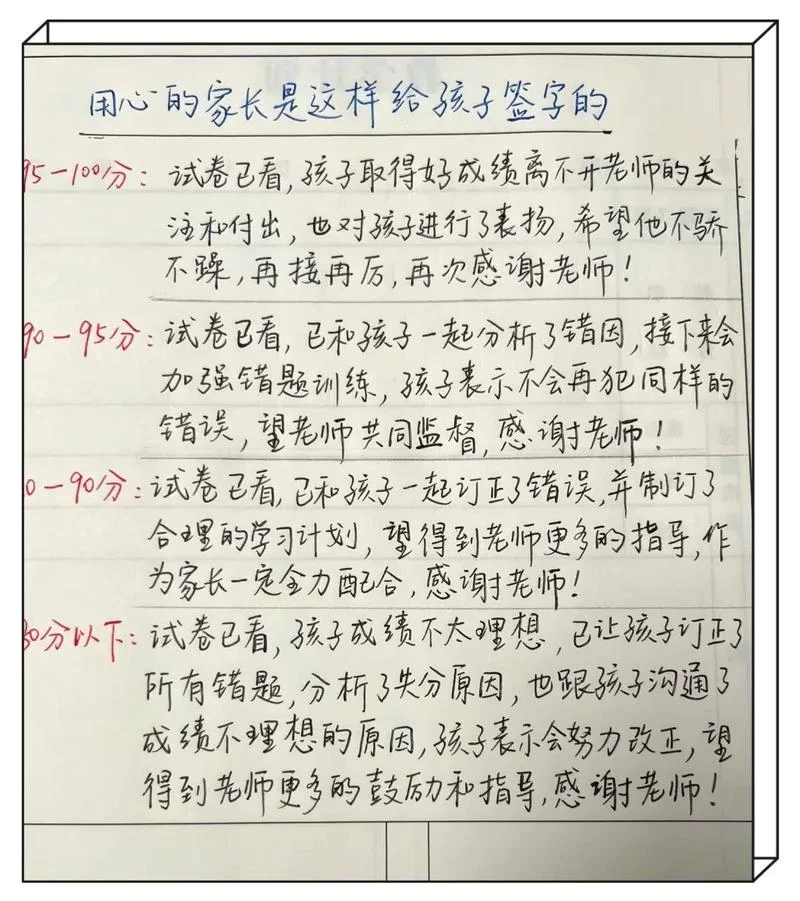 用心的家长是这样给孩子签字的
95-100分：试卷已看，孩子取得好成绩离不开老师的关
注和付出，也对孩子进行了表扬，希望他不骄
不躁，再接再厉，再次感谢老师！
90-95分：试卷已看，已和孩子一起分析了错因，接下来会
加强错题训练，孩子表示不会再犯同样的
错误，望老师共同监督，感谢老师！
0-90分：试卷已看，已和孩子一起订正了错误，并制订了
合理的学习计划，望得到老师更多的指导，作
为家长一定全力配合，感谢老师！
80分以下：试卷已看，孩子成绩不太理想，已让孩子订正了
所有错题，分析了失分原因，也跟孩子沟通了
成绩不理想的原因，孩子表示会努力改正，望
得到老师更多的鼓励和指导，感谢老师！